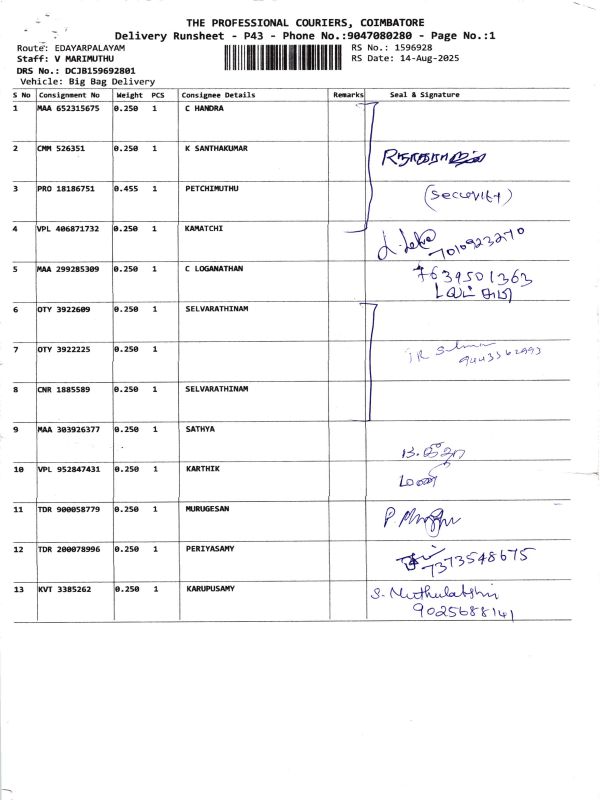 THE PROFESSIONAL COURIERS, COIMBATORE
Delivery Runsheet - P43 - Phone No.:9047080280 - Page No.:1
Route: EDAYARPALAYAM RS No.: 1596928
Staff: V MARIMUTHU RS Date: 14-Aug-2025
DRS No.: DCJB159692801
Vehicle: Big Bag Delivery
S No Consignment No Weight PCS Consignee Details Remarks Seal & Signature
1 MAA 652315675 0.250 1 C HANDRA
2 CMM 526351 0.250 1 K SANTHAKUMAR
3 PRO 18186751 0.455 1 PETCHIMUTHU (Security)
4 VPL 406871732 0.250 1 KAMATCHI 7010923270
5 MAA 299285309 0.250 1 C LOGANATHAN 7639501363
6 OTY 3922609 0.250 1 SELVARATHINAM
7 OTY 3922225 0.250 1
8 CNR 1885589 0.250 1 SELVARATHINAM
9 MAA 303926377 0.250 1 SATHYA
10 VPL 952847431 0.250 1 KARTHIK மணி
11 TDR 900058779 0.250 1 MURUGESAN
12 TDR 200078996 0.250 1 PERIYASAMY 7373548675
13 KVT 3385262 0.250 1 KARUPUSAMY S. Muthulakshmi
9025688141